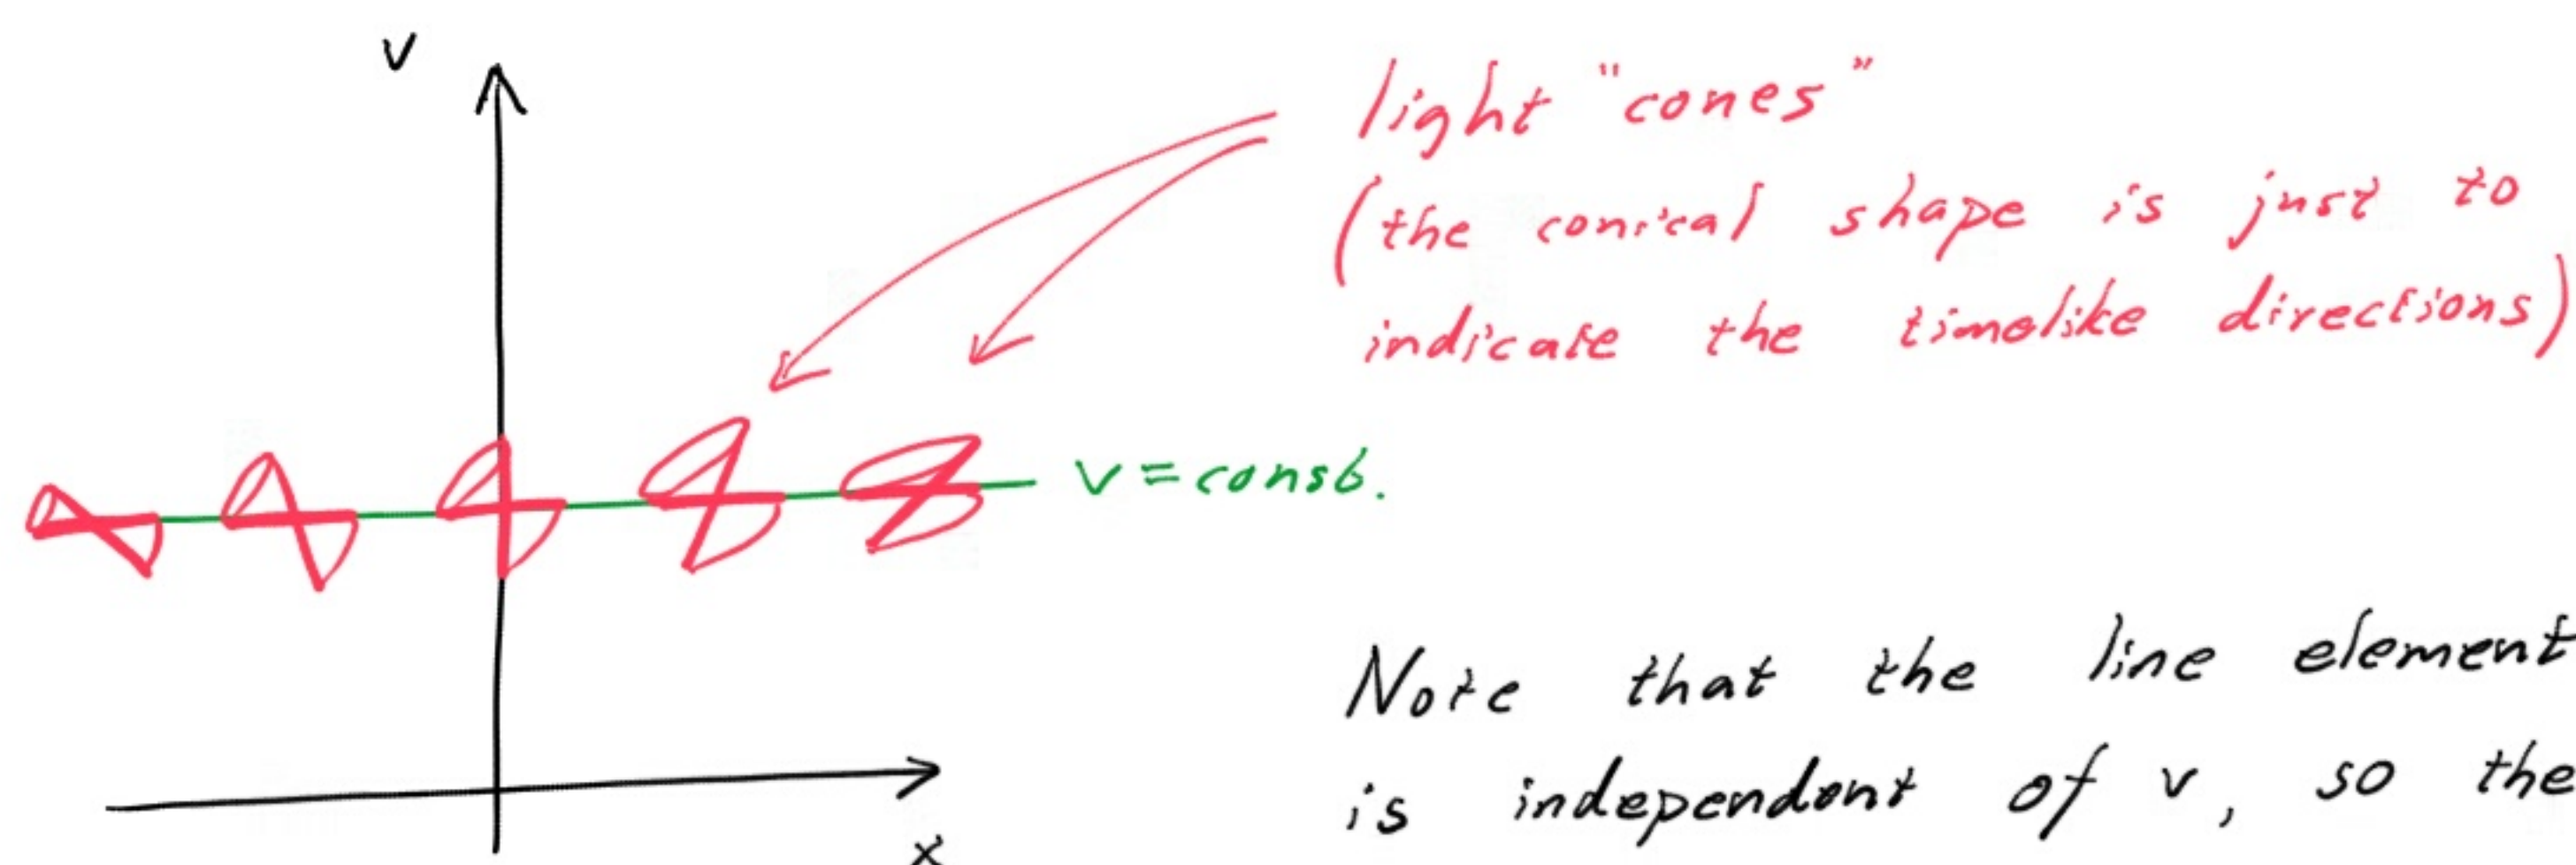 v
light "cones"
(the conical shape is just to
indicate the timelike directions)
v = const.
Note that the line element
is independent of v, so the
x